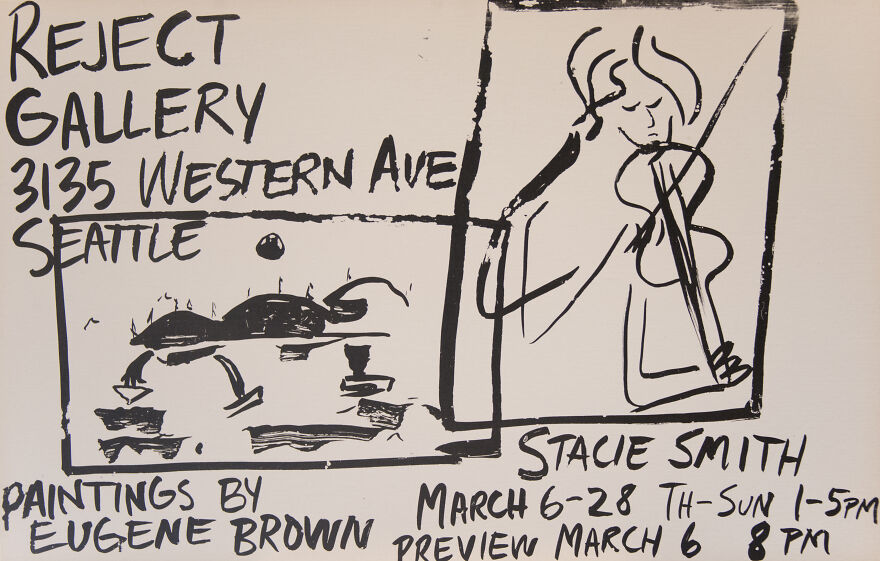 REJECT
GALLERY
3135 WESTERN AVE
SEATTLE
PAINTINGS BY
EUGENE BROWN
STACIE SMITH
MARCH 6-28 TH-SUN 1-5PM
PREVIEW MARCH 6 8 PM